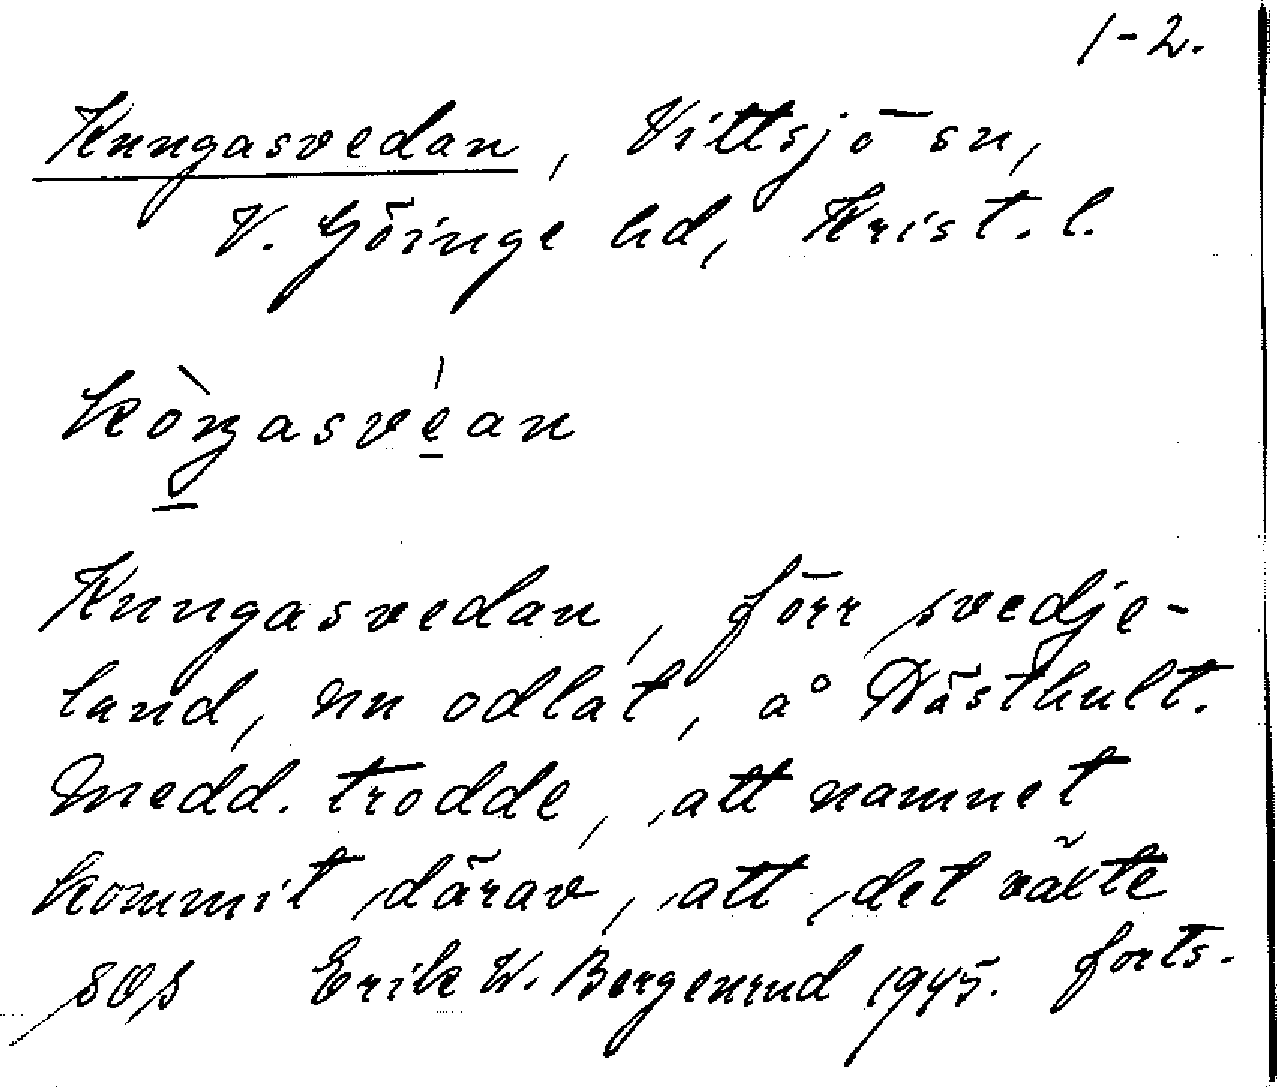 1-2.
Kungasvedan, Vittsjö sn,
V. Göinge hd, Krist. l.
kòŋasvéan
Kungasvedan, förr svedje-
land, nu odlat, å Nösthult.
Medd. trodde, att namnet
kommit därav, att det växte
Erik W. Bergenrud 1945. forts.